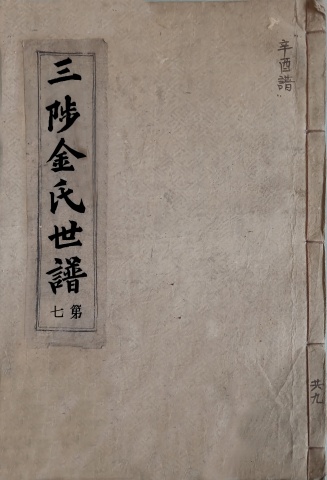 辛酉譜
三陟金氏世譜
第七
共九